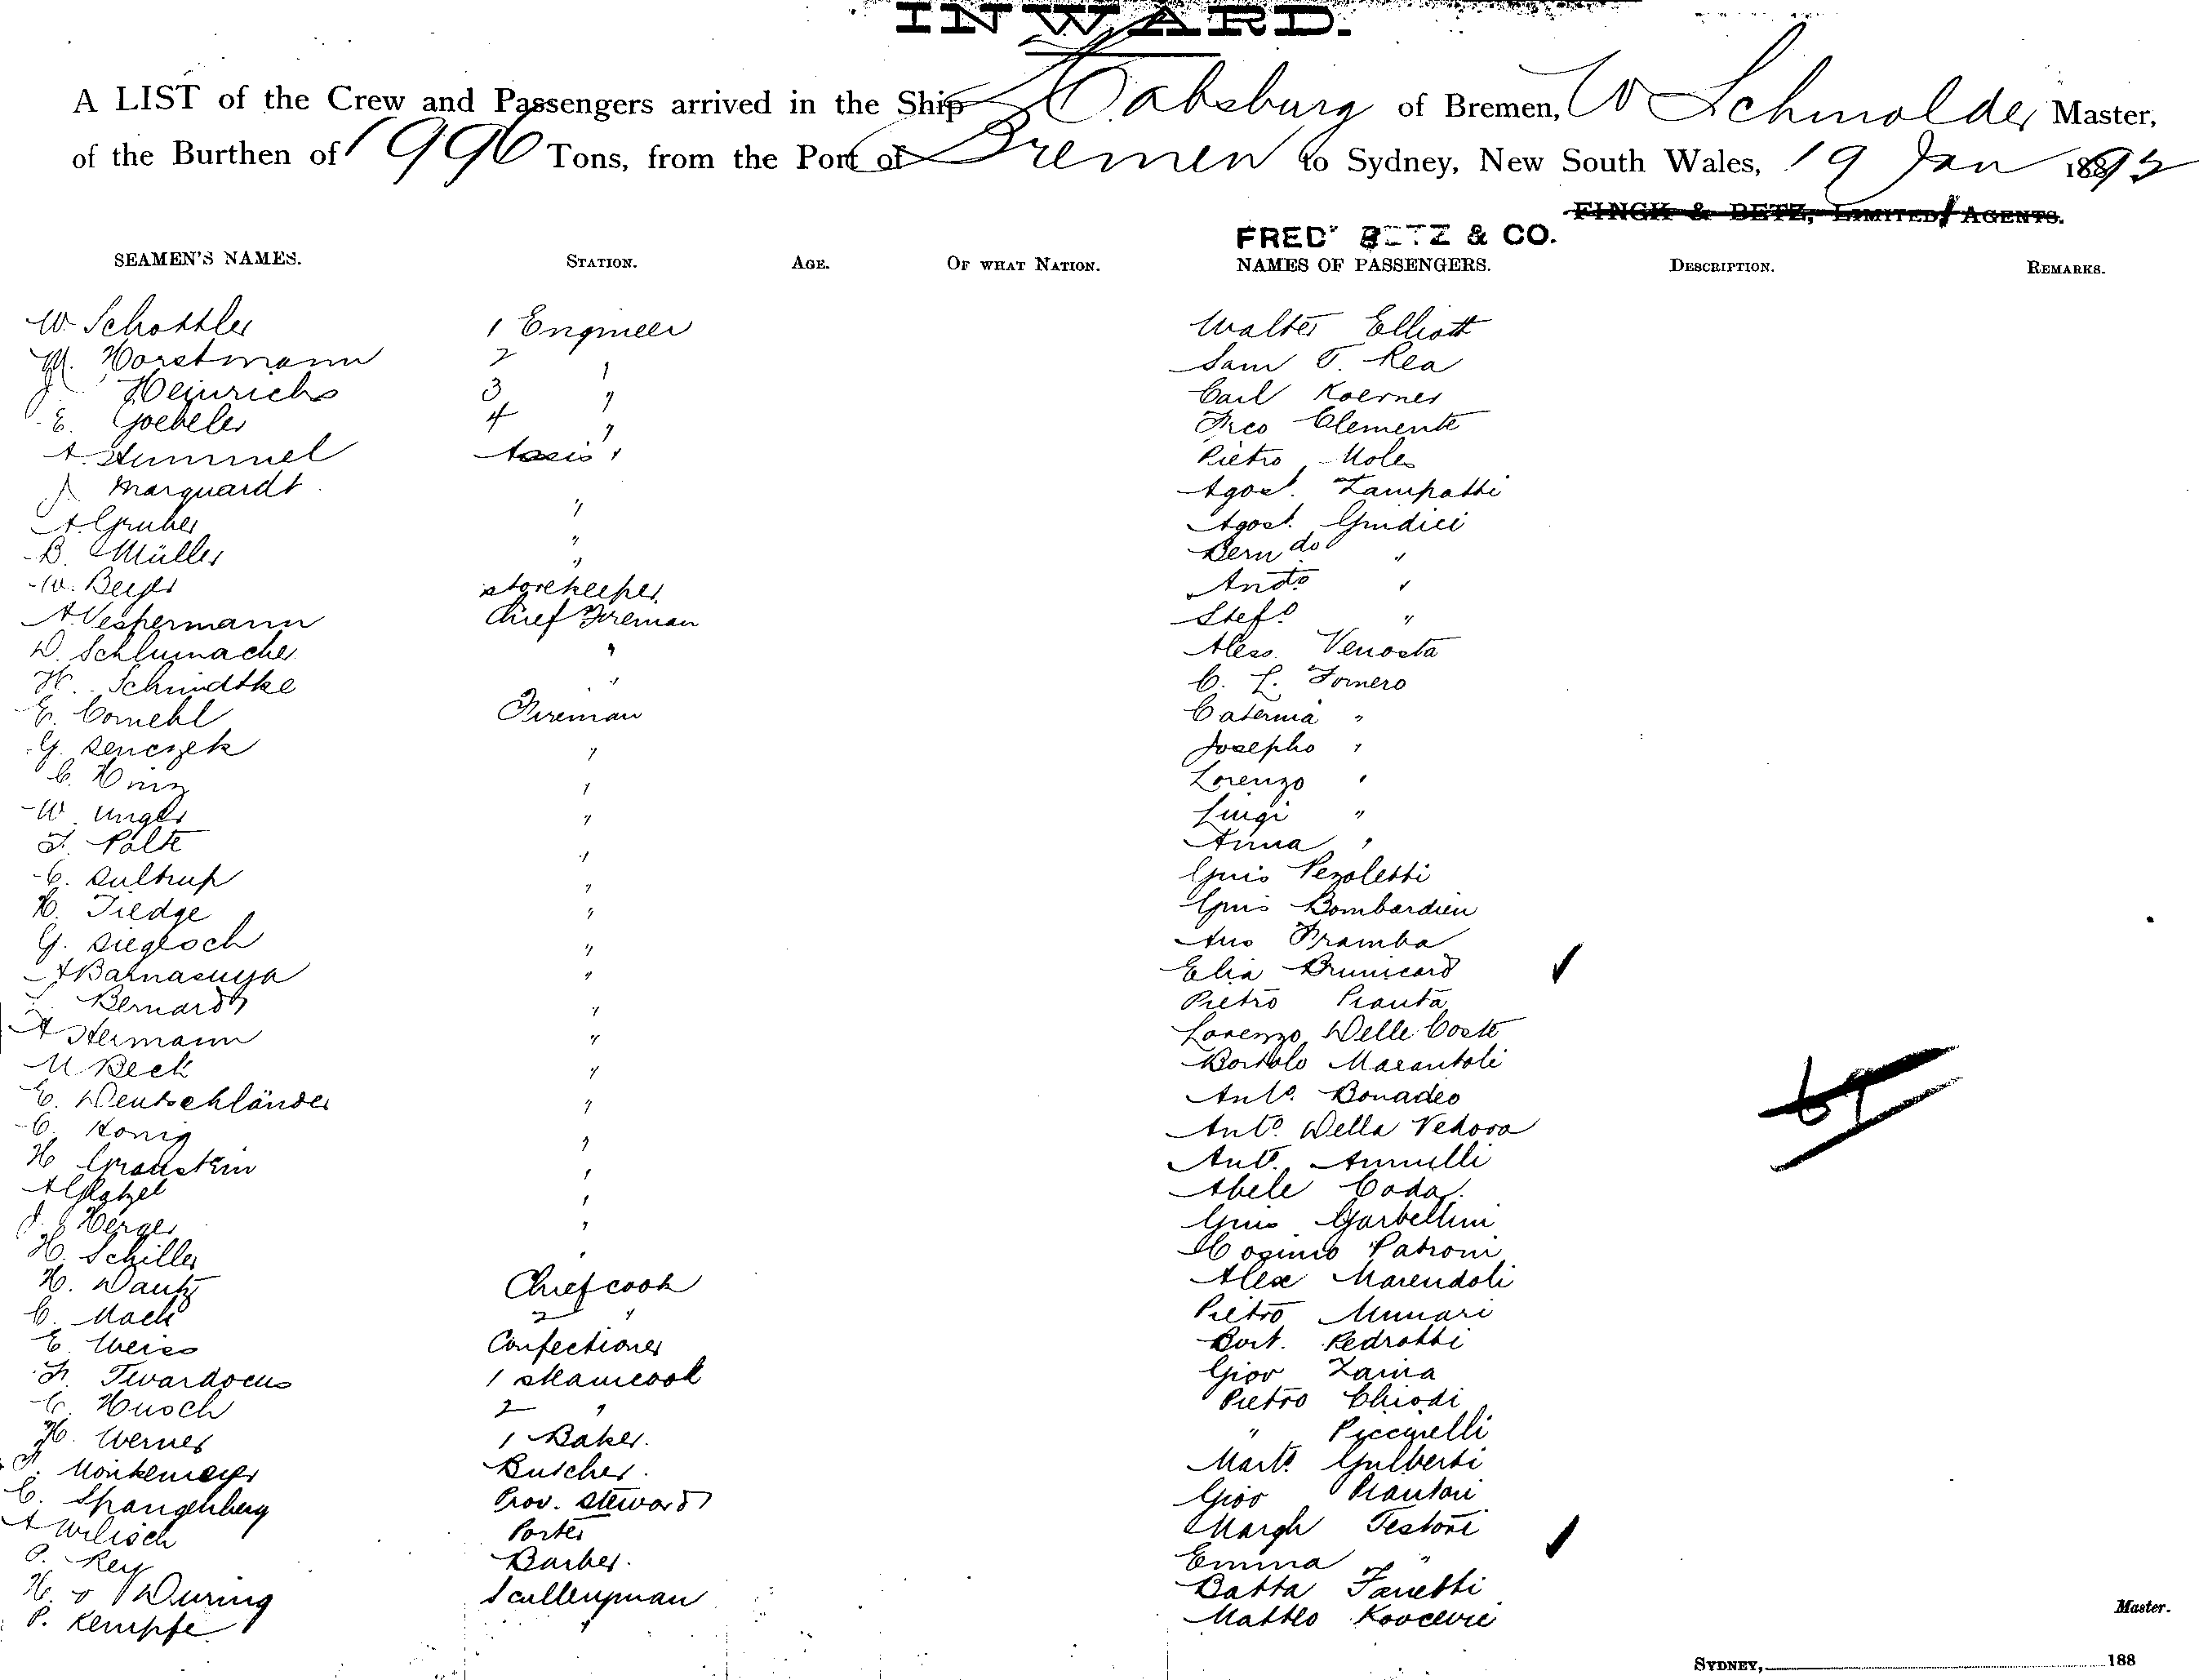 INWARD.
A LIST of the Crew and Passengers arrived in the Ship Habsburg of Bremen, W Schmolder Master,
of the Burthen of 1996 Tons, from the Port of Bremen to Sydney, New South Wales, 19 Jan 1892
FINCK & BETZ, LIMITED, AGENTS.
FREDK BETZ & CO.
SEAMEN'S NAMES. STATION. AGE. OF WHAT NATION. NAMES OF PASSENGERS. DESCRIPTION. REMARKS.
W Schottler 1 Engineer Walter Elliott
M. Horstmann 2 " Sam T. Rea
J Heinrichs 3 " Carl Koerner
E. Goebeler 4 " Frco Clemente
A. Hummel Assis " Pietro Moles
J Marquardt " Agost. Zampatti
A Gruber " Agost. Giudici
B. Müller " Bern do "
W. Beyer storekeeper Anto "
A Vespermann Chief Fireman Stefo "
D. Schlumacher " Aless. Venosta
H. Schmidtke " C. L. Fornero
E. Cornehl Fireman Caterina "
G. Senczek " Josepho "
C. Hinz " Lorenzo "
W. Unger " Luigi "
F. Polte " Anna "
C. Sultrup " Guis Pezoletti
H. Tiedge " Guis Bombardieu
G. Siegloch " Ano Framba
A Barnasuya " Elia Brunicard
Bernardy " Pietro Pianta
A Hermann " Lorenzo Delle Coste
M Beck " Bortolo Marantoli
E. Deutschländer " Anto. Bonadeo
C. König " Anto. Della Vedova
H Granstein " Anto. Annulli
A Glatzel " Abele Coda
J. Herger " Guis Garbellini
H. Schiller " Cosimo Patroni
H. Dautz Chief cook Alex Marendoli
C. Mach 2 " Pietro Munari
E Weiss Confectioner Bort. Pedrotti
F. Twardocus 1 steamcook Giov Zaina
C. Husch 2 " Pietro Chiodi
H. Werner 1 Baker. " Piccinelli
F. Mönkemeyer Butcher. Marto Gulberti
C. Spangenberg Prov. steward Giov Piantoni
A Wilisch Porter Margh Testoni
P. Rey Barber. Emma "
H. v Düring Sculleryman Batta Zanetti
P. Kempfe " Matteo Kovcevic
69
Master.
SYDNEY, 188